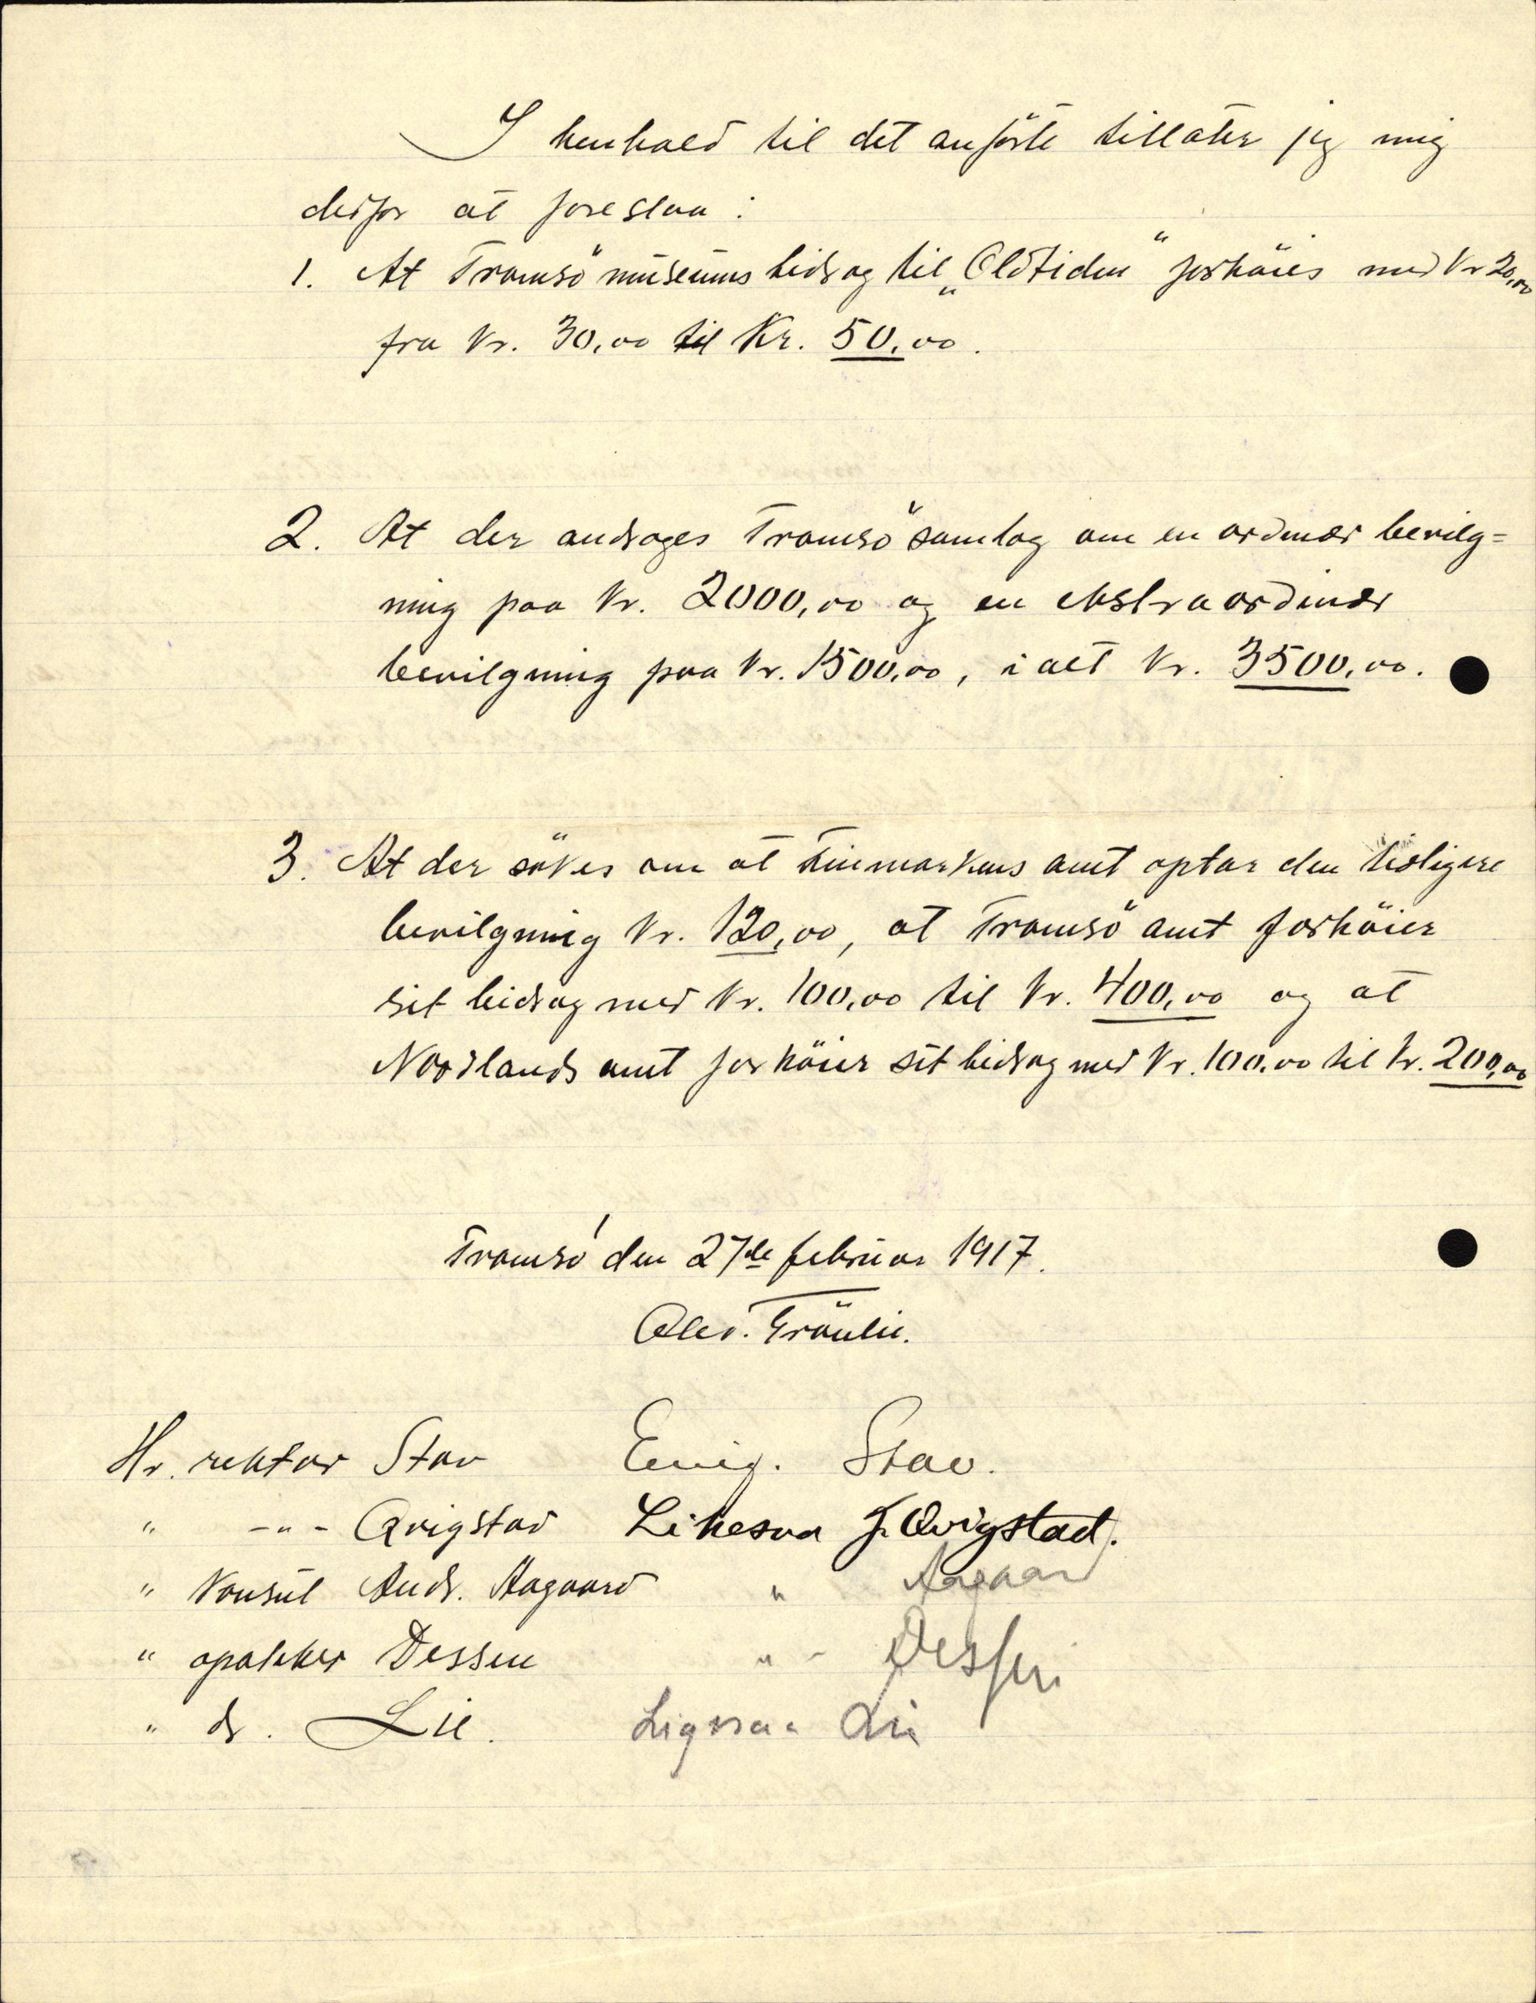 I henhold til det anförte tillater jeg mig
derfor at foreslaa :
1. At Tromsö museums bidrag til „Oldtiden“ forhöies med Kr 20,00
fra Kr. 30,00 til Kr. 50,00.
2. At der andrages Tromsö samlag om en ordinær bevilg=
ning paa Kr. 2000,00 og en ekstraordinær
bevilgning paa Kr. 1500,00, i alt Kr. 3500,00.
3. At der sökes om at Finmarkens amt optar den tidligere
bevilgning Kr. 120,00, at Tromsö amt forhöier
sit bidrag med Kr. 100,00 til Kr. 400,00 og at
Nordlands amt forhöier sit bidrag med Kr. 100,00 til Kr. 200,00
Tromsó den 27de februar 1917.
Hr. rektor Stav Enig. Stav.
" -"- Qvigstad Likesaa J. Qvigstad.
" Konsul Andr. Aagaard " Aagaard
" apoteker Dessen " - Dessen
" dr. Lie. Ligesaa Lie